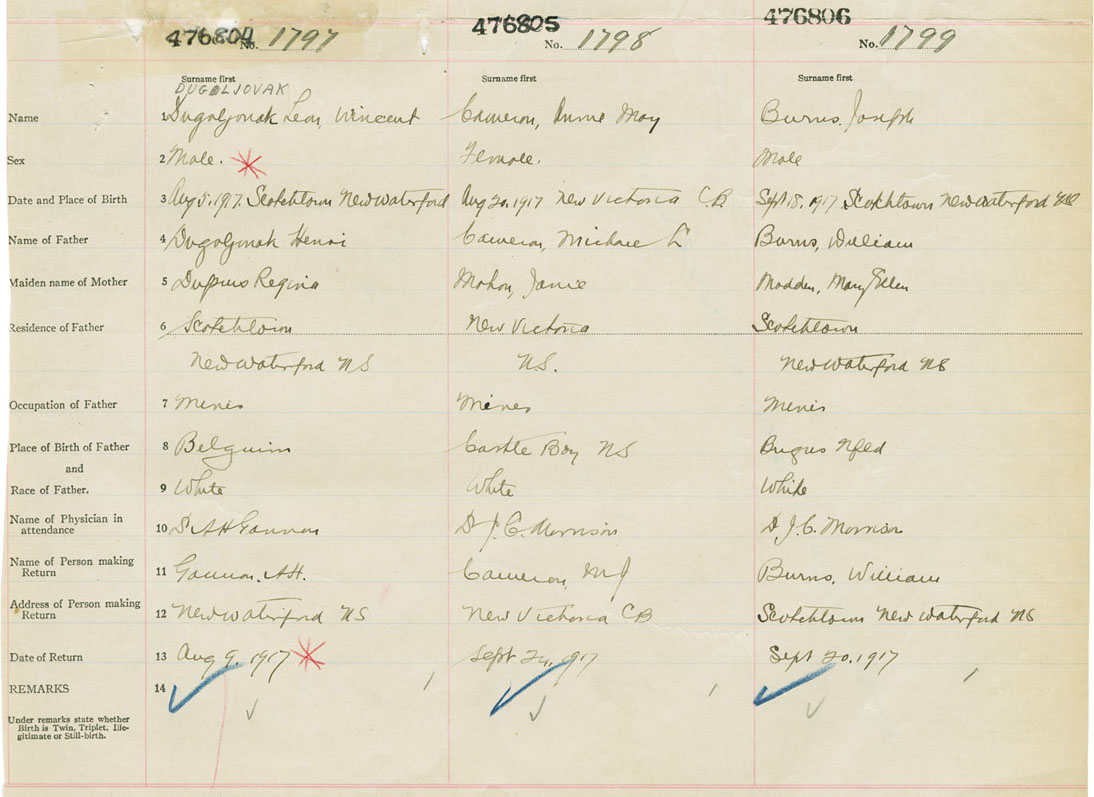 476804 476805 476806
No. 1797 No. 1798 No. 1799
Surname first Surname first Surname first
DUGOLJOVAK
Name 1 Dugoljonak Leon, Wincent Cameron, Annie May Burns, Joseph
Sex 2 Male. Female. Male
Date and Place of Birth 3 Aug 5. 1917. Scotchtown New Waterford Aug 20, 1917 New Victoria C.B Sept 18, 1917 Scotchtown New Waterford NS
Name of Father 4 Dugoljonak Henri Cameron, Michael Burns, William
Maiden name of Mother 5 Regina Mahon, Janie Madden, Mary Ellen
Residence of Father 6 Scotchtown New Victoria Scotchtown
New Waterford NS N.S. New Waterford NS
Occupation of Father 7 Miner Miner Miner
Place of Birth of Father 8 Belguim Castle Bay NS Brigus Nfld
and
Race of Father. 9 White White White
Name of Physician in
attendance 10 A H Gannon D J. C. Morrison D. J. C. Morrison
Name of Person making
Return 11 Gannon. A H. Cameron, M J Burns, William
Address of Person making
Return 12 New Waterford NS New Victoria CB Scotchtown New Waterford NS
Date of Return 13 Aug 9, 1917 Sept 20, 1917 Sept 20, 1917
REMARKS 14
Under remarks state whether
Birth is Twin, Triplet, Ille-
gitimate or Still-birth.